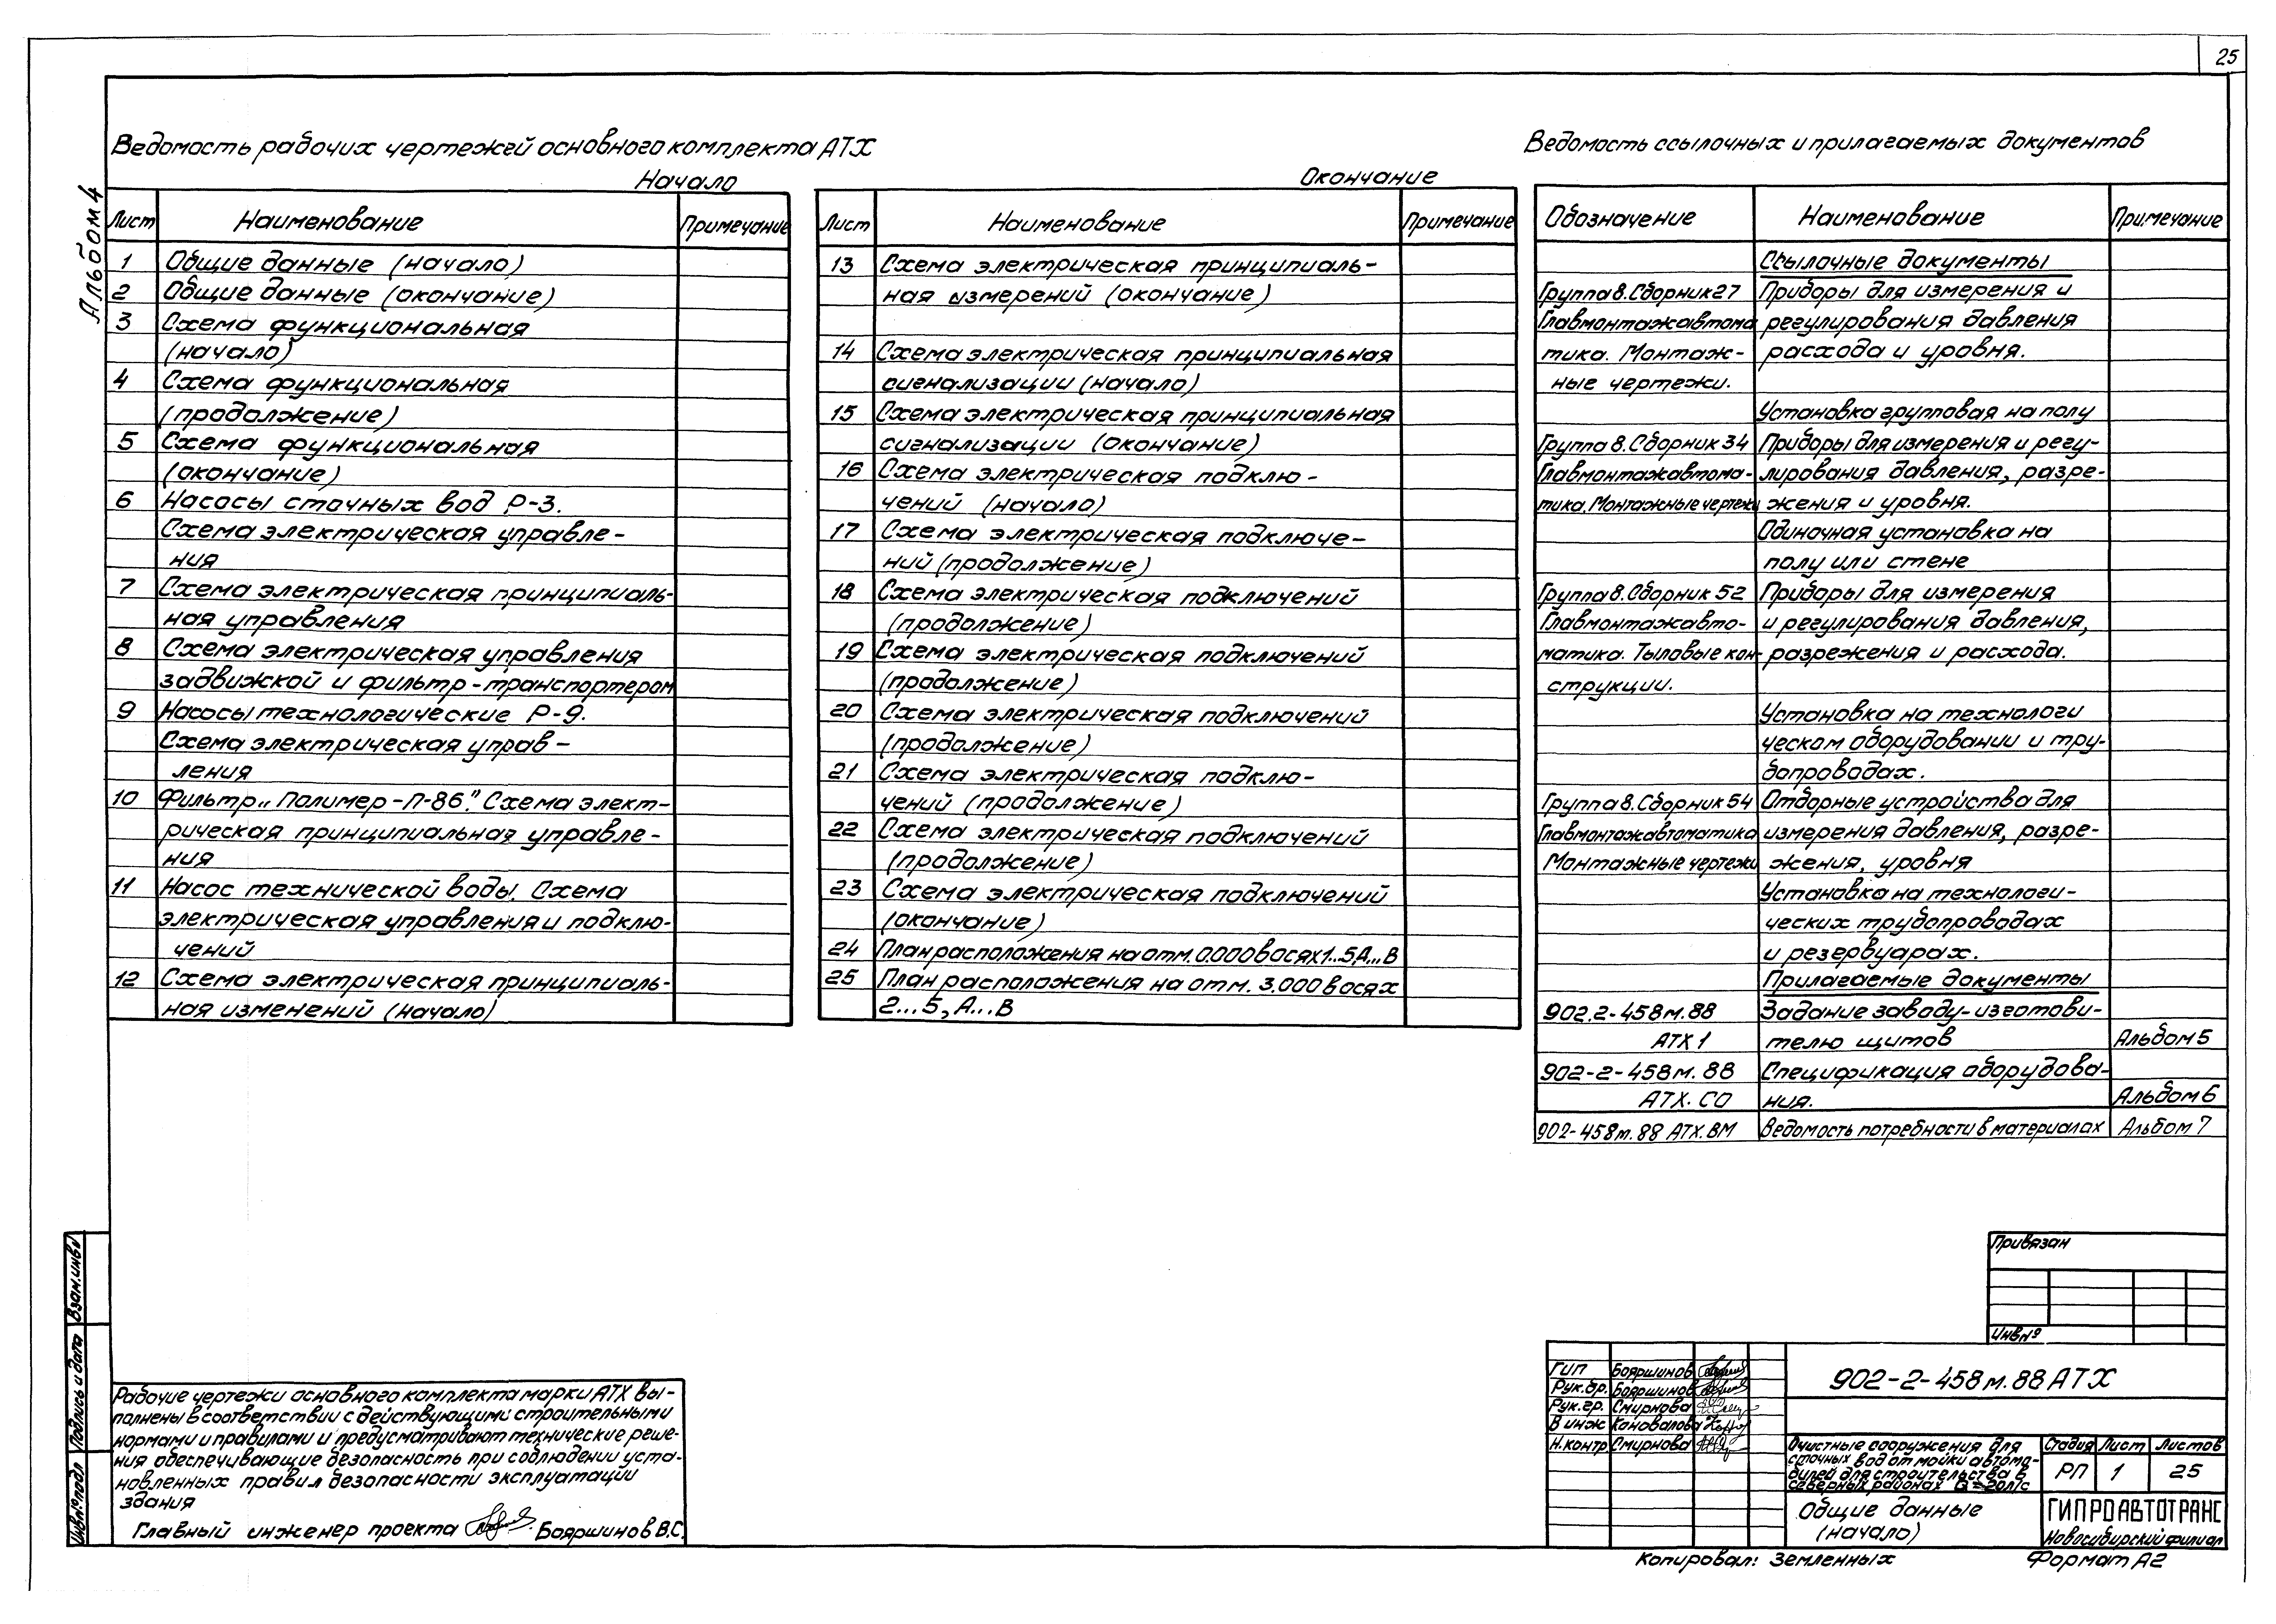 25
Альбом 4
Ведомость рабочих чертежей основного комплекта АТХ
Начало
Лист Наименование Примечание
1 Общие данные (начало)
2 Общие данные (окончание)
3 Схема функциональная
(начало)
4 Схема функциональная
(продолжение)
5 Схема функциональная
(окончание)
6 Насосы сточных вод Р-3.
Схема электрическая управле-
ния
7 Схема электрическая принципиаль-
ная управления
8 Схема электрическая управления
задвижкой и фильтр-транспортером
9 Насосы технологические Р-9.
Схема электрическая управ-
ления
10 Фильтр „Полимер-П-86". Схема элект-
рическая принципиальная управле-
ния
11 Насос технической воды. Схема
электрическая управления и подклю-
чений
12 Схема электрическая принципиаль-
ная изменений (начало)
Окончание
Лист Наименование Примечание
13 Схема электрическая принципиаль-
ная измерений (окончание)
14 Схема электрическая принципиальная
сигнализации (начало)
15 Схема электрическая принципиальная
сигнализации (окончание)
16 Схема электрическая подклю-
чений (начало)
17 Схема электрическая подключе-
ний (продолжение)
18 Схема электрическая подключений
(продолжение)
19 Схема электрическая подключений
(продолжение)
20 Схема электрическая подключений
(продолжение)
21 Схема электрическая подклю-
чений (продолжение)
22 Схема электрическая подключений
(продолжение)
23 Схема электрическая подключений
(окончание)
24 План расположения на отм. 0.000 в осях 1...5, А...В
25 План расположения на отм. 3.000 в осях
2...5, А...В
Ведомость ссылочных и прилагаемых документов
Обозначение Наименование Примечание
Ссылочные документы
Группа 8. Сборник 27 Приборы для измерения и
Главмонтажавтома регулирования давления
тика. Монтаж- расхода и уровня.
ные чертежи.
Установка групповая на полу
Группа 8. Сборник 34 Приборы для измерения и регу-
Главмонтажавтома- лирования давления, разре-
тика. Монтажные чертежи жения и уровня.
Одиночная установка на
полу или стене
Группа 8. Сборник 52 Приборы для измерения
Главмонтажавто- и регулирования давления,
матика. Тыловые кон- разрежения и расхода.
струкции.
Установка на технологи
ческом оборудовании и тру-
бопроводах.
Группа 8. Сборник 54 Отборные устройства для
Главмонтажавтоматика измерения давления, разре-
Монтажные чертежи жения, уровня
Установка на технологи-
ческих трубопроводах
и резервуарах.
Прилагаемые документы
902.2-458м.88 Задание заводу-изготови-
АТХ 1 телю щитов Альбом 5
902-2-458м.88 Спецификация оборудова-
АТХ.СО ния. Альбом 6
902-458м.88 АТХ.ВМ Ведомость потребности в материалах Альбом 7
Взам.инв№
Подпись и дата
Инв№подл
Рабочие чертежи основного комплекта марки АТХ вы-
полнены в соответствии с действующими строительными
нормами и правилами и предусматривают технические реше-
ния обеспечивающие безопасность при соблюдении уста-
новленных правил безопасности эксплуатации
здания
Главный инженер проекта Бояршинов В.С.
Привязан
Инв№
ГИП Бояршинов
Рук.бр. Бояршинов
Рук.гр. Смирнова
В инж Коновалова
Н.контр Смирнова
902-2-458м.88 АТХ
Очистные сооружения для
сточных вод от мойки автомо-
билей для строительства в
северных районах Q=20л/с
Стадия Лист Листов
РП 1 25
Общие данные
(начало)
ГИПРОАВТОТРАНС
Новосибирский филиал
Копировал: Земленных Формат А2